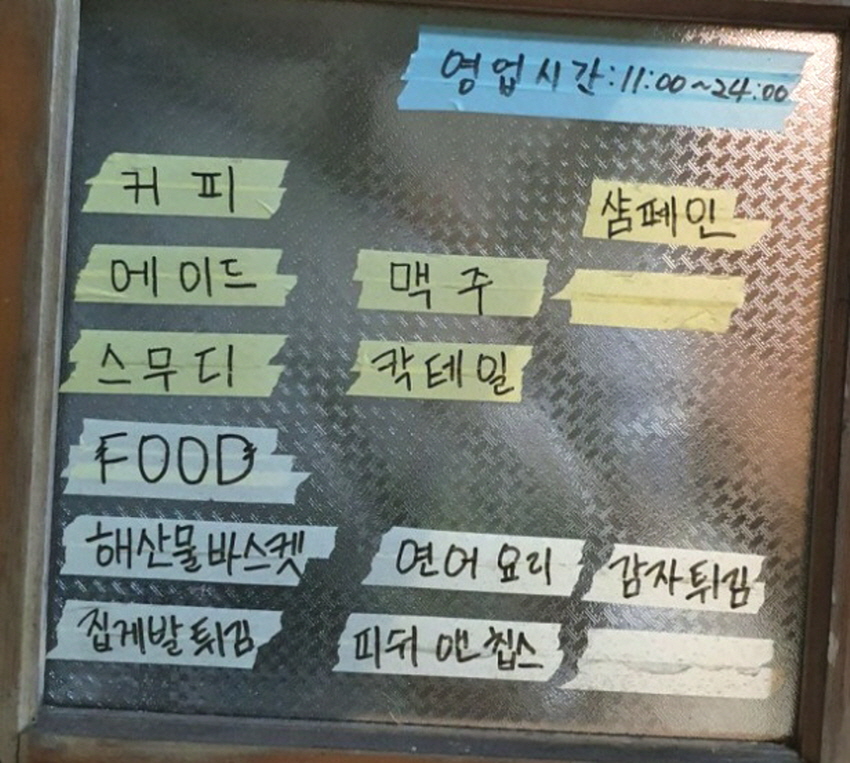 영업시간:11:00~24:00
커피
샴페인
에이드 맥주
스무디 칵테일
FOOD
해산물바스켓 연어요리 감자튀김
집게발튀김 피쉬앤칩스